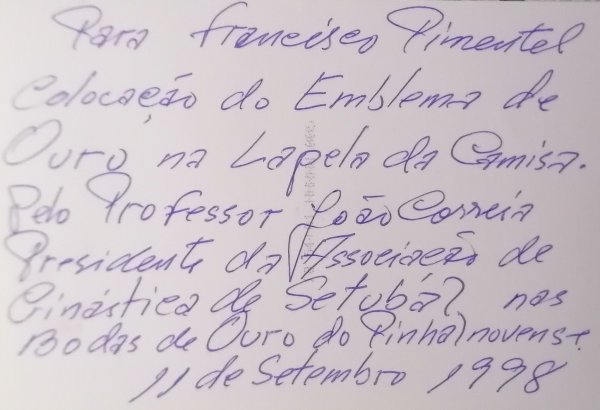 Para Francisco Pimentel
Colocação do Emblema de
Ouro na Lapela da Camisa.
Pelo Professor João Correia
Presidente da Associação de
Ginástica de Setubál nas
Bodas de Ouro do Pinhalnovense
11 de Setembro 1998